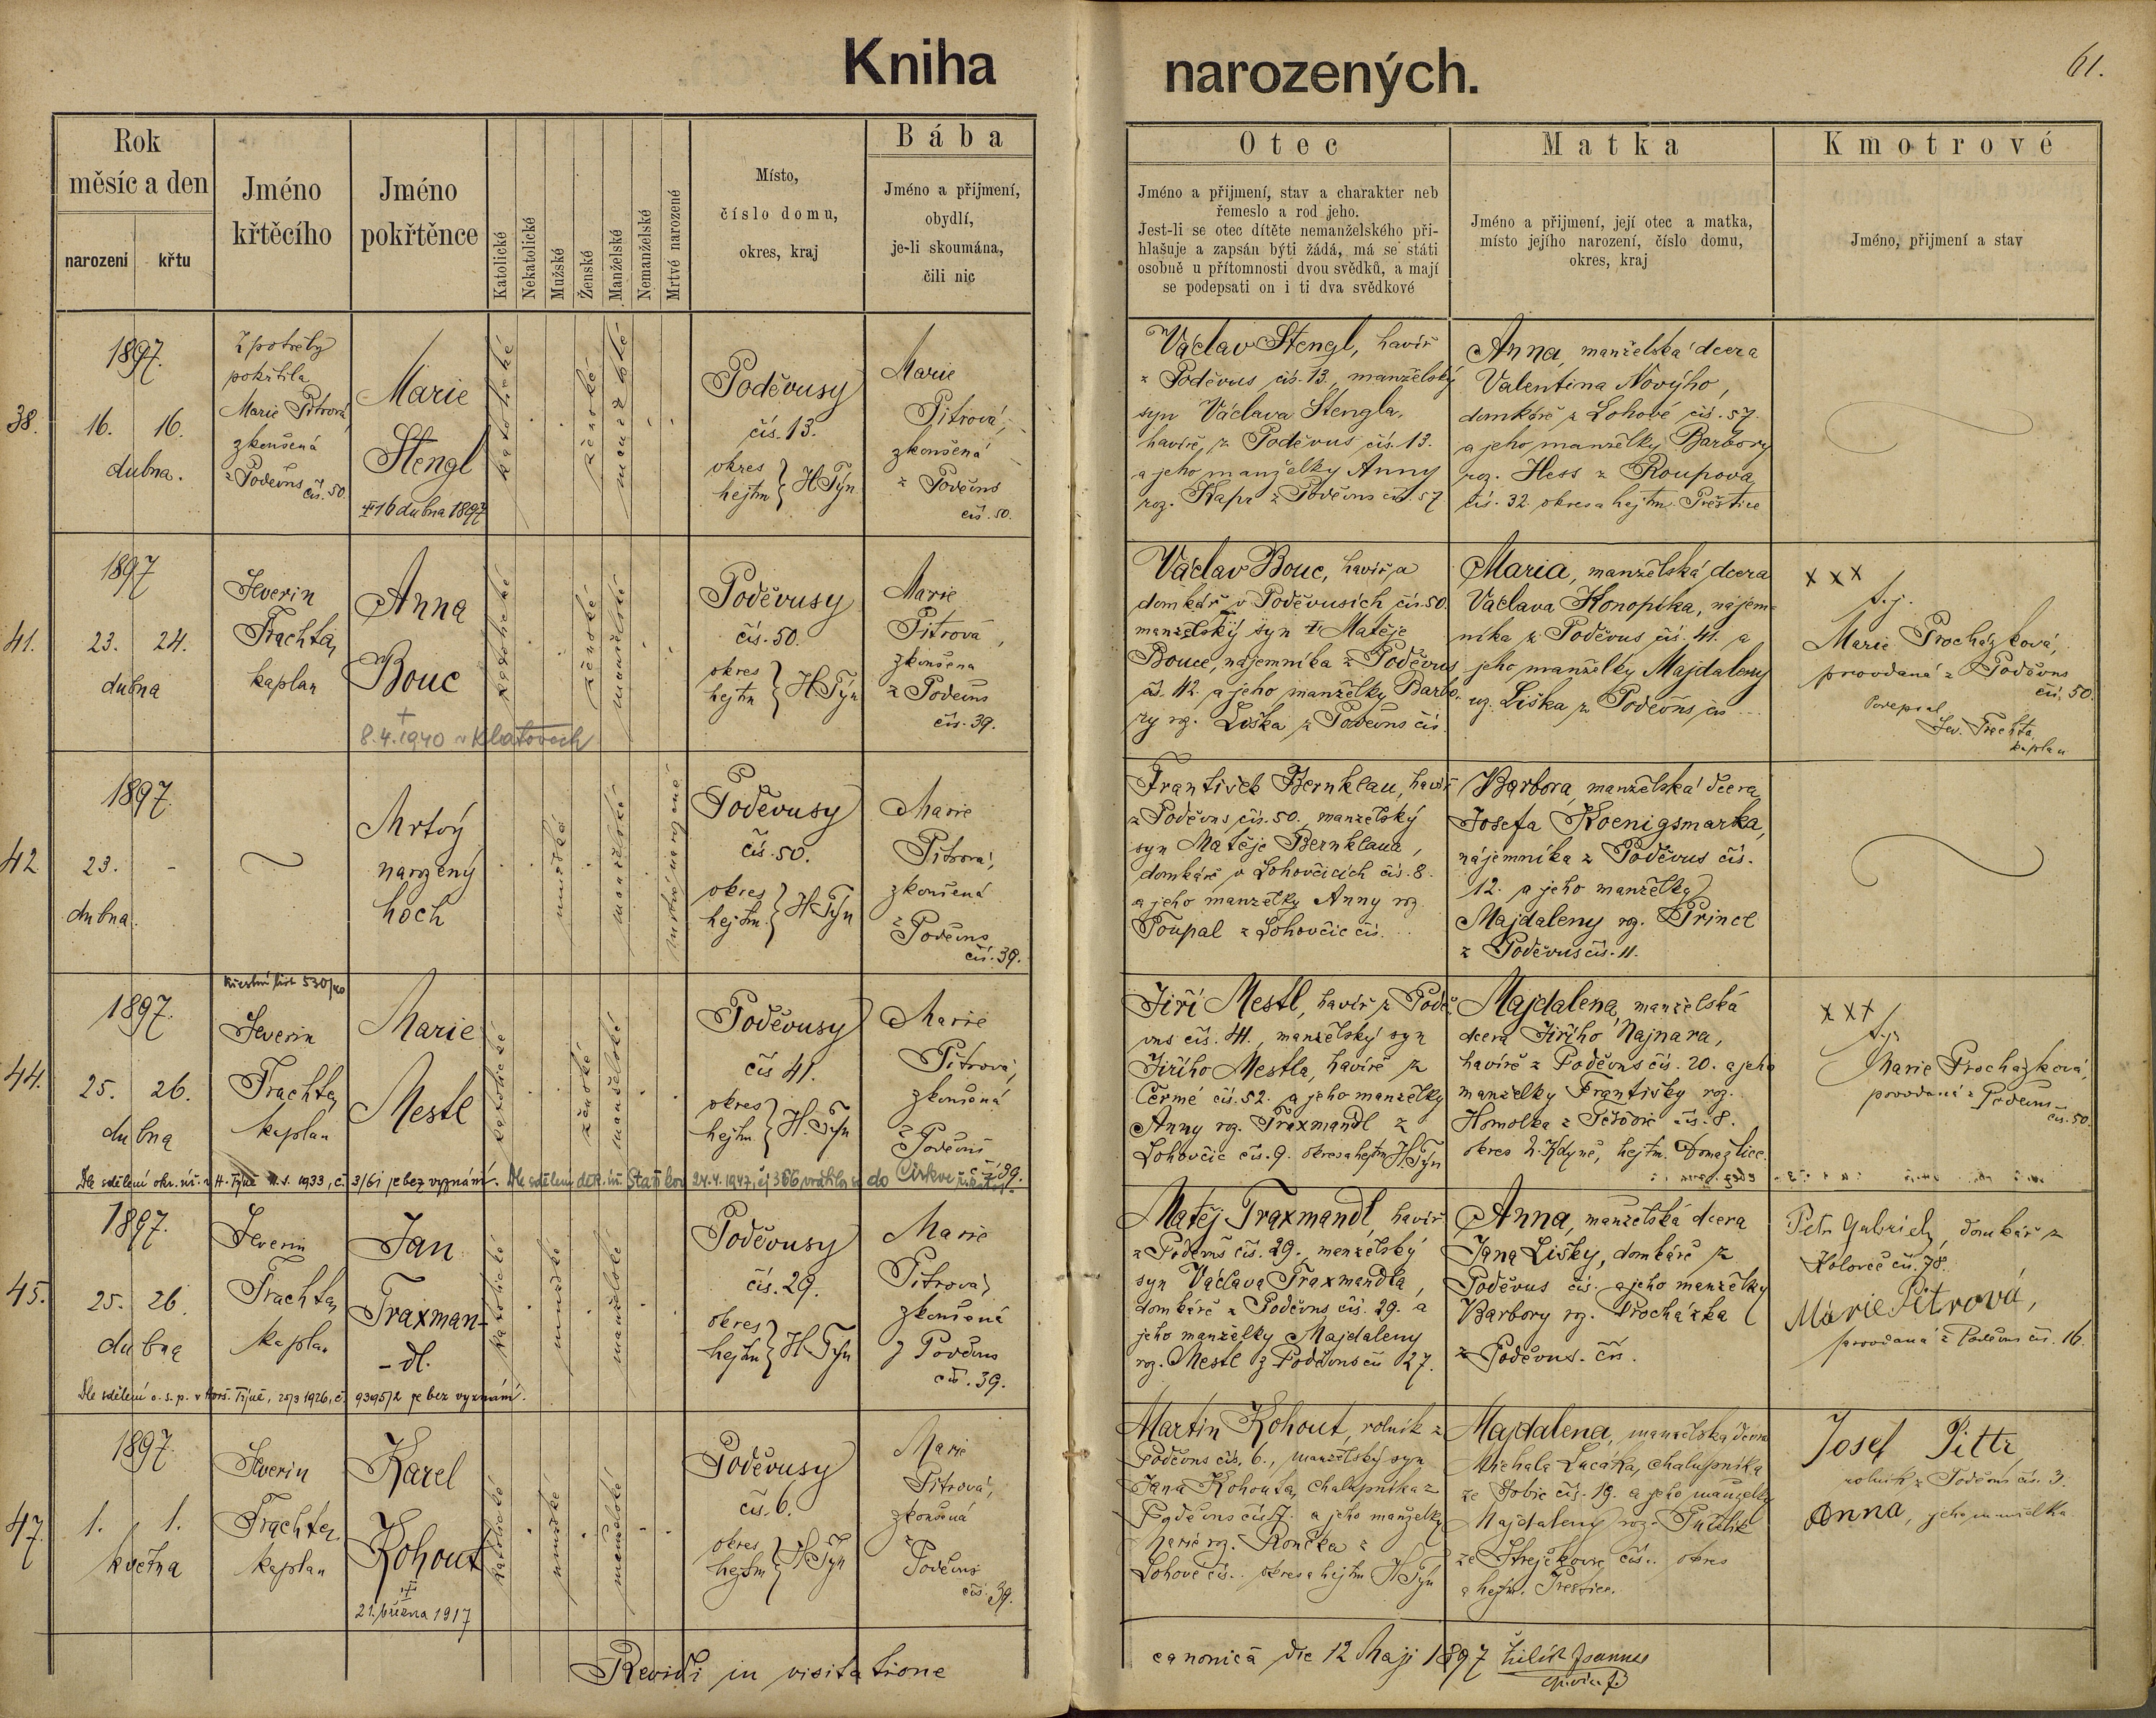 Kniha narozených.
61.
Rok
měsíc a den
narození
křtu
Jméno
křtěcího
Jméno
pokřtěnce
Katolické
Nekatolické
Mužské
Ženské
Manželské
Nemanželské
Mrtvě narozené
Místo,
číslo domu,
okres, kraj
Bába
Jméno a přijmení,
obydlí,
je-li skoumána,
čili nic
Otec
Jméno a přijmení, stav a charakter neb
řemeslo a rod jeho.
Jest-li se otec dítěte nemanželského při-
hlašuje a zapsán býti žádá, má se státi
osobně u přítomnosti dvou svědků, a mají
se podepsati on i ti dva svědkové
Matka
Jméno a přijmení, její otec a matka,
místo jejího narození, číslo domu,
okres, kraj
Kmotrové
Jméno, přijmení a stav
38.
1897.
16. 16.
dubna.
Z potřeby
pokřtila
Marie Pitrová
zkoušená
z Poděvus čís. 50.
Marie
Stengl
16 dubna 1897
katolické
ženské
manželské
Poděvusy
čís. 13.
okres
hejtm } H. Týn
Marie
Pitrová,
zkoušená
z Poděvus
čís. 50.
Václav Stengl, havíř
z Poděvus čís. 13., manželský
syn Václava Stengla,
havíře z Poděvus čís. 13.
a jeho manželky Anny
roz. Kapr z Poděvus čís. 57
Anna, manželská dcera
Valentina Nového,
domkáře z Lohové čís. 57.
a jeho manželky Barbory
roz. Hess z Roupova,
čís. 32. okres a hejtm. Přeštice
41.
1897
23. 24.
dubna
Severin
Trachta,
kaplan
Anna
Bouc
† 8.4.1940 v Klatovech
katolické
ženské
manželské
Poděvusy
čís. 50.
okres
hejtm } H. Týn
Marie
Pitrová,
zkoušena
z Poděvus
čís. 39.
Václav Bouc, havíř a
domkář v Poděvusích čís. 50.
manželský syn † Matěje
Bouce, nájemníka z Poděvus
čís. 42. a jeho manželky Barbo-
ry roz. Liška z Poděvus čís.
Maria, manželská dcera
Václava Konopíka, nájem-
níka z Poděvus čís. 41. a
jeho manželky Majdaleny
roz. Liška z Poděvus čís...
x x x
t.j.
Marie Procházková,
provdaná z Poděvus
čís. 50.
Podepsal
Sev. Trachta,
kaplan
42
1897.
23. -
dubna.
Mrtvý
narozený
hoch
mužské
manželské
mrtvě narozené
Poděvusy
čís. 50.
okres
hejtm. } H. Týn
Marie
Pitrová,
zkoušená
z Poděvus
čís. 39.
František Bernklau, havíř
z Poděvus čís. 50., manželský
syn Matěje Bernklaua,
domkáře v Lohovčicích čís. 8.
a jeho manželky Anny roz.
Toupal z Lohovčic čís. ...
Barbora, manželská dcera
Josefa Koenigsmarka,
nájemníka z Poděvus čís.
12. a jeho manželky
Majdaleny roz. Princl
z Poděvus čís. 11.
44.
Křestní list 530/40
1897.
25. 26.
dubna
Severin
Trachta,
kaplan
Marie
Mestl
katolické
ženské
manželské
Poděvusy
čís 41.
okres
hejtm. } H. Týn
Marie
Pitrová,
zkoušená
z Poděvus
čís. 39.
Jiří Mestl, havíř z Podě-
vus čís. 41., manželský syn
Jiřího Mestla, havíře z
Čermé čís. 52. a jeho manželky
Anny roz. Traxmandl z
Lohovčic čís. 9. okres a hejtm H. Týn
Majdalena, manželská
dcera Jiřího Najnara,
havíře z Poděvus čís. 20. a jeho
manželky Františky roz.
Homolka z čís. 8.
okres N. Kdyně, hejtm. Domažlice.
x x x
t.j.
Marie Procházková,
provdaná z Poděvus
čís. 50.
Dle sdělení okr. úř. v H. Týně 1933, č. 3/61 je bez vyznání. Dle sdělení děk. úř. Staňkov 24.4.1947, čj 366 vrátila se do Církve
45.
1897.
25. 26.
dubna
Severin
Trachta,
kaplan
Jan
Traxman-
-dl.
katolické
mužské
manželské
Poděvusy
čís. 29.
okres
hejtm } H. Týn
Marie
Pitrová,
zkoušená
z Poděvus
čís. 39.
Matěj Traxmandl, havíř
z Poděvus čís. 29., manželský
syn Václava Traxmandla,
domkáře z Poděvus čís. 29. a
jeho manželky Majdaleny
roz. Mestl z Poděvus čís 27.
Anna, manželská dcera
Jana Lišky, domkáře z
Poděvus čís. a jeho manželky
Barbory roz. Procházka
z Poděvus. čís.
Petr Gabriel, domkář z
Koloveč čís. 78.
Marie Pitrová,
provdaná z Poděvus čís. 16.
Dle sdělení o. s. p. v Horš. Týně, 20/3 1926, č. 9395/2 je bez vyznání.
47.
1897.
1. 1.
května
Severin
Trachta,
kaplan
Karel
Kohout
21. března 1917
katolické
mužské
manželské
Poděvusy
čís. 6.
okres
hejtm } H. Týn
Marie
Pitrová,
zkoušená
z
Poděvus
čís. 39.
Martin Kohout, rolník z
Poděvus čís. 6., manželský syn
Jana Kohouta, chalupníka z
Poděvus čís. 7. a jeho manželky
Marie roz. Rončka z
Lohové čís.. okres a hejtm H. Týn
Majdalena, manželská dcera
Michala Lucáka, chalupníka
ze čís. 19. a jeho manželky
Majdaleny roz.
ze čís.. okres
a hejtm. Přeštice.
Josef Pittr
rolník z Poděvus čís. 3.
Anna, jeho manželka
Revidi in visitatione canonicâ die 12 Maji 1897